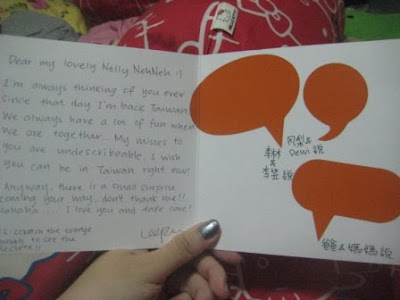 Dear my lovely Nelly NehNeh :)
I'm always thinking of you ever
since that day I'm back Taiwan.
We always have a lot of fun when
we are together... My misses to
you are undescribeable. I wish
you can be in Taiwan right now!
Anyway, there is a small surprise
coming your way, don't thank me!!
hahaha.... I love you and take care!
P.S. scratch the orange
to see the
secrete!!
Dewi 說
說
爸&媽媽說